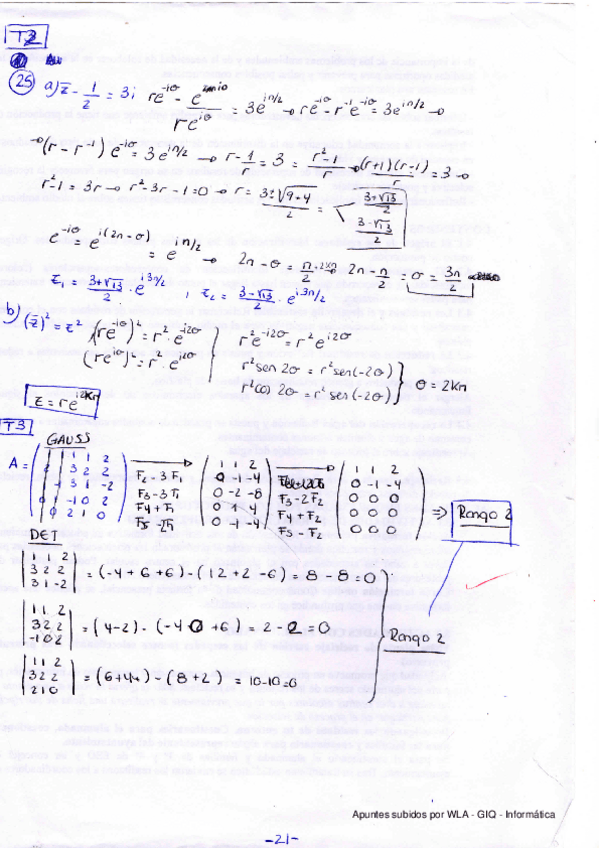 T2
(25) a) z̄ - 1/z = 3i   re^-iσ - e^2πi0/re^iσ = 3e^iπ/2 → re^-iσ - r^-1 e^-iσ = 3e^iπ/2 →
→ (r - r^-1) e^-iσ = 3e^iπ/2 → r - 1/r = 3 = r²-1/r → (r+1)(r-1)/r = 3 →
r²-1 = 3r → r²-3r-1=0 → r = 3±√9+4/2 = < 3+√13/2
3-√13/2
e^-iσ = e^i(2π-σ) = e^iπ/2 → 2π-σ = π/2 +2Kπ → 2π - π/2 = σ = 3π/2
z₁ = 3+√13/2 · e^i3π/2 , z₂ = 3-√13/2 · e^i3π/2
b) (z̄)² = z²   (re^-iσ)² = r² e^-i2σ
(re^iσ)² = r² e^i2σ
r² e^-i2σ = r² e^i2σ
r² sen 2σ = r² sen(-2σ)
r² cos 2σ = r² sen(-2σ)   σ = 2Kπ
z = re^i2Kπ
T3
GAUSS
A = 
1 1 2
3 2 2
3 1 -2
-1 0 2
2 1 0
F₂-3F₁
F₃-3F₁
F₄+F₁
F₅-2F₁
1 1 2
0 -1 -4
0 -2 -8
0 1 4
0 -1 -4
F₃-2F₂
F₄+F₂
F₅-F₂
1 1 2
0 -1 -4
0 0 0
0 0 0
0 0 0
⇒ Rango 2
DET
|1 1 2
3 2 2
3 1 -2| = (-4+6+6)-(12+2-6) = 8-8=0
|1 1 2
3 2 2
-1 0 2| = (4-2)-(-4 0+6) = 2-2=0
|1 1 2
3 2 2
2 1 0| = (6+4)-(8+2) = 10-10=0
Rango 2
Apuntes subidos por WLA - GIQ - Informática
-21-